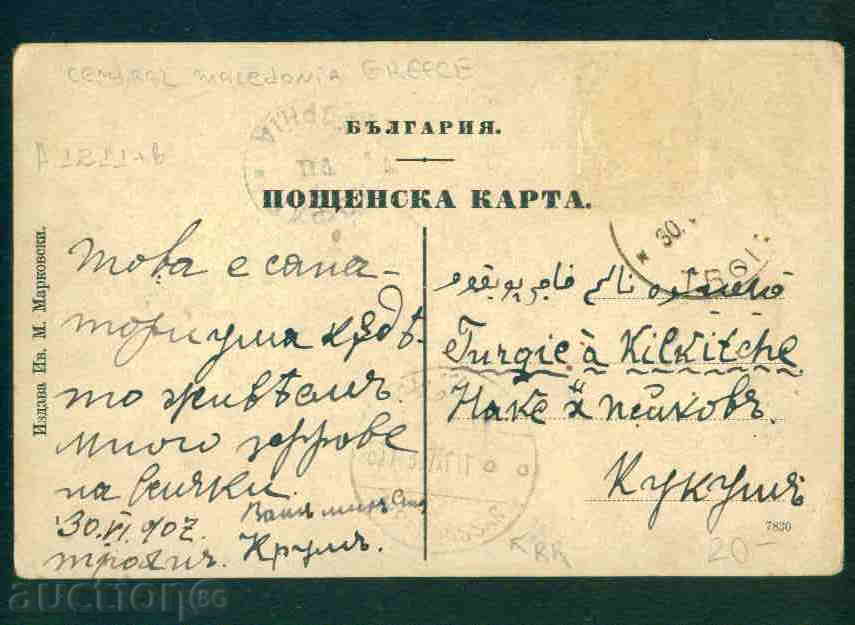 CENTRAL MACEDONIA GREECE
БЪЛГАРИЯ.
ПОЩЕНСКА КАРТА.
Издава Ив. М. Марковски.
Това е сана-
ториума кждѣ-
то живѣемъ.
Много здраве
на всички.
30 VI 907.
Крумъ.
30.
Turgie à Kilkitche
Наке Пейковъ.
Кукушъ
7830
20-
auction BG